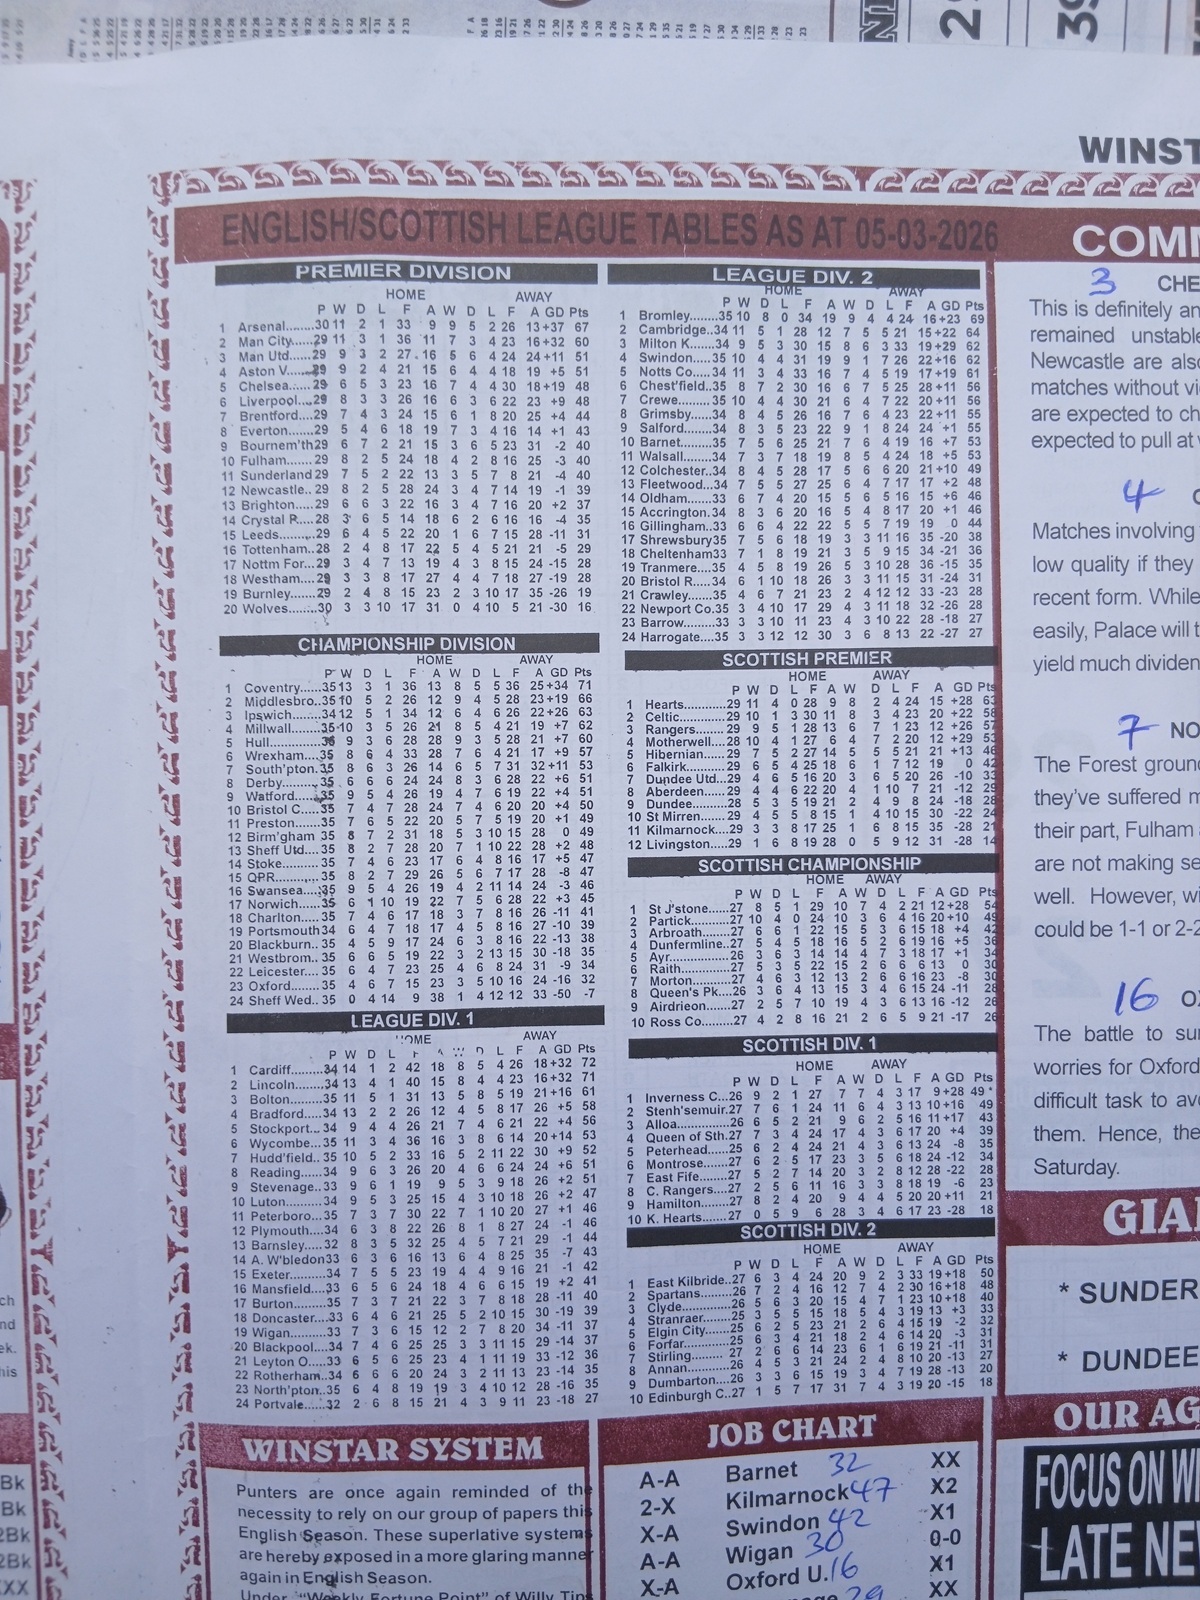 WINST
ENGLISH/SCOTTISH LEAGUE TABLES AS AT 05-03-2026
PREMIER DIVISION
HOME AWAY
P W D L F A W D L F A GD Pts
1 Arsenal.......30 11 2 1 33 9 9 5 2 26 13 +37 67
2 Man City......29 11 3 1 36 11 7 3 4 23 16 +32 60
3 Man Utd.....29 9 3 2 27 16 5 6 4 24 24 +11 51
4 Aston V.......29 9 2 4 21 15 6 4 4 18 19 +5 51
5 Chelsea.......29 6 5 3 23 16 7 4 4 30 18 +19 48
6 Liverpool....29 8 3 3 26 16 6 3 6 22 23 +9 48
7 Brentford....29 7 4 3 24 15 6 1 8 20 25 +4 44
8 Everton......29 5 4 6 18 19 7 3 4 16 14 +1 43
9 Bournem'th29 6 7 2 21 15 3 6 5 23 31 -2 40
10 Fulham.......29 8 2 5 24 18 4 2 8 16 25 -3 40
11 Sunderland 29 7 5 2 22 13 3 5 7 8 21 -4 40
12 Newcastle.. 29 8 2 5 28 24 3 4 7 14 19 -1 39
13 Brighton..... 29 6 6 3 22 16 3 4 7 16 20 +2 37
14 Crystal P.... 28 3 6 5 14 18 6 2 6 16 16 -4 35
15 Leeds.........29 6 4 5 22 20 1 6 7 15 28 -11 31
16 Tottenham..28 2 4 8 17 22 5 4 5 21 21 -5 29
17 Nottm For...29 3 4 7 13 19 4 3 8 15 24 -15 28
18 Westham....29 3 3 8 17 27 4 4 7 18 27 -19 28
19 Burnley.......29 2 4 8 15 23 2 3 10 17 35 -26 19
20 Wolves.......30 3 3 10 17 31 0 4 10 5 21 -30 16
CHAMPIONSHIP DIVISION
HOME AWAY
P W D L F A W D L F A GD Pts
1 Coventry......35 13 3 1 36 13 8 5 5 36 25 +34 71
2 Middlesbro..35 10 5 2 26 12 9 4 5 28 23 +19 66
3 Ipswich.......34 12 5 1 34 12 6 4 6 26 22 +26 63
4 Millwall......35 10 3 5 26 21 8 5 4 21 19 +7 62
5 Hull............ 9 3 6 28 28 9 3 5 28 21 +7 60
6 Wrexham....35 8 6 4 33 28 7 6 4 21 17 +9 57
7 South'pton.35 8 6 3 26 14 6 5 7 31 32 +11 53
8 Derby.........35 6 6 6 24 24 8 3 6 28 22 +6 51
9 Watford......35 9 5 4 26 19 4 7 6 19 22 +4 51
10 Bristol C....35 7 4 7 28 24 7 4 6 20 20 +4 50
11 Preston.......35 7 6 5 22 20 5 7 5 19 20 +1 49
12 Birm'gham 35 8 7 2 31 18 5 3 10 15 28 0 49
13 Sheff Utd....35 8 2 7 28 20 7 1 10 22 28 +2 48
14 Stoke..........35 7 4 6 23 17 6 4 8 16 17 +5 47
15 QPR............35 8 2 7 29 26 5 6 7 17 28 -8 47
16 Swansea.....35 9 5 4 26 19 4 2 11 14 24 -3 46
17 Norwich......35 6 1 10 19 22 7 5 6 28 22 +3 45
18 Charlton......35 7 4 6 17 18 3 7 8 16 26 -11 41
19 Portsmouth34 6 4 7 18 17 4 5 8 16 27 -10 39
20 Blackburn..35 4 5 9 17 24 6 3 8 16 22 -13 38
21 Westbrom...35 6 6 5 19 22 3 2 13 15 30 -18 35
22 Leicester....35 6 4 7 23 25 4 6 8 24 31 -9 34
23 Oxford........35 4 6 7 15 23 3 5 10 16 24 -16 32
24 Sheff Wed.. 35 0 4 14 9 38 1 4 12 12 33 -50 -7
LEAGUE DIV. 1
HOME AWAY
P W D L F A W D L F A GD Pts
1 Cardiff.........34 14 1 2 42 18 8 5 4 26 18 +32 72
2 Lincoln........34 13 4 1 40 15 8 4 4 23 16 +32 71
3 Bolton.........35 11 5 1 31 13 5 8 5 19 21 +16 61
4 Bradford.....34 13 2 2 26 12 4 5 8 17 26 +5 58
5 Stockport....34 9 4 4 26 21 7 4 6 21 22 +4 56
6 Wycombe....35 11 3 4 36 16 3 8 6 14 20 +14 53
7 Hudd'field..35 10 5 2 33 16 5 2 11 22 30 +9 52
8 Reading......34 9 6 3 26 20 4 6 6 24 24 +6 51
9 Stevenage..33 9 6 1 19 9 5 3 9 18 26 +2 51
10 Luton..........34 9 5 3 25 15 4 3 10 18 26 +2 47
11 Peterboro...35 7 3 7 30 22 7 1 10 20 27 +1 46
12 Plymouth....34 6 3 8 22 26 8 1 8 27 24 -1 46
13 Barnsley.....32 8 3 5 32 25 4 5 7 21 29 -1 44
14 A. W'bledon33 6 3 6 16 13 6 4 8 25 35 -7 43
15 Exeter.........34 7 5 5 23 19 4 4 9 16 21 -1 42
16 Mansfield...33 6 5 6 24 18 4 6 6 15 19 +2 41
17 Burton........35 7 3 7 21 22 3 7 8 18 28 -11 40
18 Doncaster...33 6 4 6 21 25 5 2 10 15 30 -19 39
19 Wigan.........33 7 3 6 15 12 2 7 8 20 34 -11 37
20 Blackpool...34 7 4 6 25 25 3 3 11 15 29 -14 37
21 Leyton O....33 6 5 6 25 23 4 1 11 19 33 -12 36
22 Rotherham..34 6 6 6 20 24 3 2 11 13 23 -14 35
23 North'pton..35 6 4 8 19 19 3 4 10 12 28 -16 35
24 Portvale.....32 2 6 8 15 21 4 3 9 11 23 -18 27
LEAGUE DIV. 2
HOME AWAY
P W D L F A W D L F A GD Pts
1 Bromley......35 10 8 0 34 19 9 4 4 24 16 +23 69
2 Cambridge..34 11 5 1 28 12 7 5 5 21 15 +22 64
3 Milton K......34 9 5 3 30 15 8 6 3 33 19 +29 62
4 Swindon.....35 10 4 4 31 19 9 1 7 26 22 +16 62
5 Notts Co.....34 11 3 4 33 16 7 4 5 19 17 +19 61
6 Chest'field..35 8 7 2 30 16 6 7 5 25 28 +11 56
7 Crewe.........35 10 4 4 30 21 6 4 7 22 20 +11 56
8 Grimsby......34 8 4 5 26 16 7 6 4 23 22 +11 55
9 Salford........34 8 3 5 23 22 9 1 8 24 24 +1 55
10 Barnet.........35 7 5 6 25 21 7 6 4 19 16 +7 53
11 Walsall.......34 7 3 7 18 19 8 5 4 24 18 +5 53
12 Colchester..34 8 4 5 28 17 5 6 6 20 21 +10 49
13 Fleetwood...34 7 5 5 27 25 6 4 7 17 17 +2 48
14 Oldham.......33 6 7 4 20 15 5 6 5 16 15 +6 46
15 Accrington..34 8 3 6 20 16 5 4 8 17 20 +1 46
16 Gillingham..33 6 6 4 22 22 5 5 7 19 19 0 44
17 Shrewsbury35 7 5 6 18 19 3 3 11 16 35 -20 38
18 Cheltenham33 7 1 8 19 21 3 5 9 15 34 -21 36
19 Tranmere....35 4 5 8 19 26 5 3 10 28 36 -15 35
20 Bristol R.....34 6 1 10 18 26 3 3 11 15 31 -24 31
21 Crawley......35 4 6 7 21 23 2 4 12 12 33 -23 28
22 Newport Co.35 3 4 10 17 29 4 3 11 18 32 -26 28
23 Barrow.......33 3 3 10 11 23 4 3 10 22 28 -18 27
24 Harrogate...35 3 3 12 12 30 3 6 8 13 22 -27 27
SCOTTISH PREMIER
HOME AWAY
P W D L F A W D L F A GD Pts
1 Hearts...........29 11 4 0 28 9 8 2 4 24 15 +28 63
2 Celtic............29 10 1 3 30 11 8 3 4 23 20 +22 58
3 Rangers.......29 9 5 1 28 13 6 7 1 23 12 +26 57
4 Motherwell...28 10 4 1 27 6 4 7 2 20 12 +29 53
5 Hibernian.....29 7 5 2 27 14 5 5 5 21 21 +13 46
6 Falkirk..........29 6 5 4 25 18 6 1 7 12 19 0 42
7 Dundee Utd...29 4 6 5 16 20 3 6 5 20 26 -10 33
8 Aberdeen.....29 4 4 6 22 20 4 1 10 7 21 -12 29
9 Dundee........28 5 3 5 19 21 2 4 9 8 24 -18 28
10 St Mirren.....29 4 5 5 8 15 1 4 10 15 30 -22 24
11 Kilmarnock...29 3 3 8 17 25 1 6 8 15 35 -28 21
12 Livingston....29 1 6 8 19 28 0 5 9 12 31 -28 14
SCOTTISH CHAMPIONSHIP
HOME AWAY
P W D L F A W D L F A GD Pts
1 St J'stone......27 8 5 1 29 10 7 4 2 21 12 +28 54
2 Partick...........27 10 4 0 24 10 3 6 4 16 20 +10 49
3 Arbroath........27 6 6 1 22 15 5 3 6 15 18 +4 42
4 Dunfermline..27 5 4 5 18 16 5 2 6 19 16 +5 36
5 Ayr................26 3 6 3 14 14 4 7 3 18 17 +1 34
6 Raith.............27 5 3 5 22 15 2 6 6 6 13 0 30
7 Morton..........27 4 6 3 12 13 2 6 6 16 23 -8 30
8 Queen's Pk...26 3 6 4 13 15 3 4 6 15 24 -11 28
9 Airdrieon......27 2 5 7 10 19 4 3 6 13 16 -12 26
10 Ross Co.......27 4 2 8 16 21 2 6 5 9 21 -17 26
SCOTTISH DIV. 1
HOME AWAY
P W D L F A W D L F A GD Pts
1 Inverness C...26 9 2 1 27 7 7 4 3 17 9 +28 49*
2 Stenh'semuir.27 7 6 1 24 11 6 4 3 13 10 +16 49
3 Alloa.............26 6 5 2 21 9 6 2 5 16 11 +17 43
4 Queen of Sth.27 7 3 4 24 17 4 3 6 17 20 +4 39
5 Peterhead.....25 6 2 4 24 21 4 3 6 13 24 -8 35
6 Montrose......27 6 2 5 17 23 3 5 6 18 24 -12 34
7 East Fife.......27 5 2 7 14 20 3 2 8 12 28 -22 28
8 C. Rangers...27 2 5 6 11 16 3 3 8 18 19 -6 23
9 Hamilton.......27 8 2 4 20 9 4 4 5 20 20 +11 21
10 K. Hearts.......27 0 5 9 6 28 3 4 6 17 23 -28 18
SCOTTISH DIV. 2
HOME AWAY
P W D L F A W D L F A GD Pts
1 East Kilbride..27 6 3 4 24 20 9 2 3 33 19 +18 50
2 Spartans........26 7 2 4 16 12 7 4 2 30 16 +18 48
3 Clyde.............26 5 6 3 20 15 4 7 1 23 10 +18 40
4 Stranraer.......25 3 5 5 15 18 5 4 3 19 13 +3 33
5 Elgin City.......25 6 2 5 23 21 2 6 4 15 19 -2 32
6 Forfar............25 6 3 4 21 18 2 4 6 14 20 -3 31
7 Stirling...........27 2 6 6 14 23 6 1 6 19 21 -11 31
8 Annan............26 4 5 3 21 24 2 4 8 10 20 -13 27
9 Dumbarton....26 3 3 6 21 24 4 2 7 19 28 -13 20
10 Edinburgh C..27 1 5 7 17 31 7 4 3 19 20 -15 18
WINSTAR SYSTEM
Punters are once again reminded of the
necessity to rely on our group of papers this
English Season. These superlative systems
are hereby exposed in a more glaring manner
again in English Season.
Under "Weekly Fortune Point" of Willy Tips
JOB CHART
A-A Barnet 32 XX
2-X Kilmarnock 47 X2
X-A Swindon 42 X1
A-A Wigan 30 0-0
X-A Oxford U. 16 X1
29 XX
COMM
3 CHE
This is definitely an
remained unstable
Newcastle are also
matches without vi
are expected to ch
expected to pull at
4
Matches involving
low quality if they
recent form. While
easily, Palace will t
yield much dividen
7 NO
The Forest ground
they've suffered m
their part, Fulham
are not making se
well. However, wi
could be 1-1 or 2-2
16
The battle to su
worries for Oxford
difficult task to avo
them. Hence, the
Saturday.
GIA
* SUNDER
* DUNDEE
OUR AG
FOCUS ON WI
LATE NE